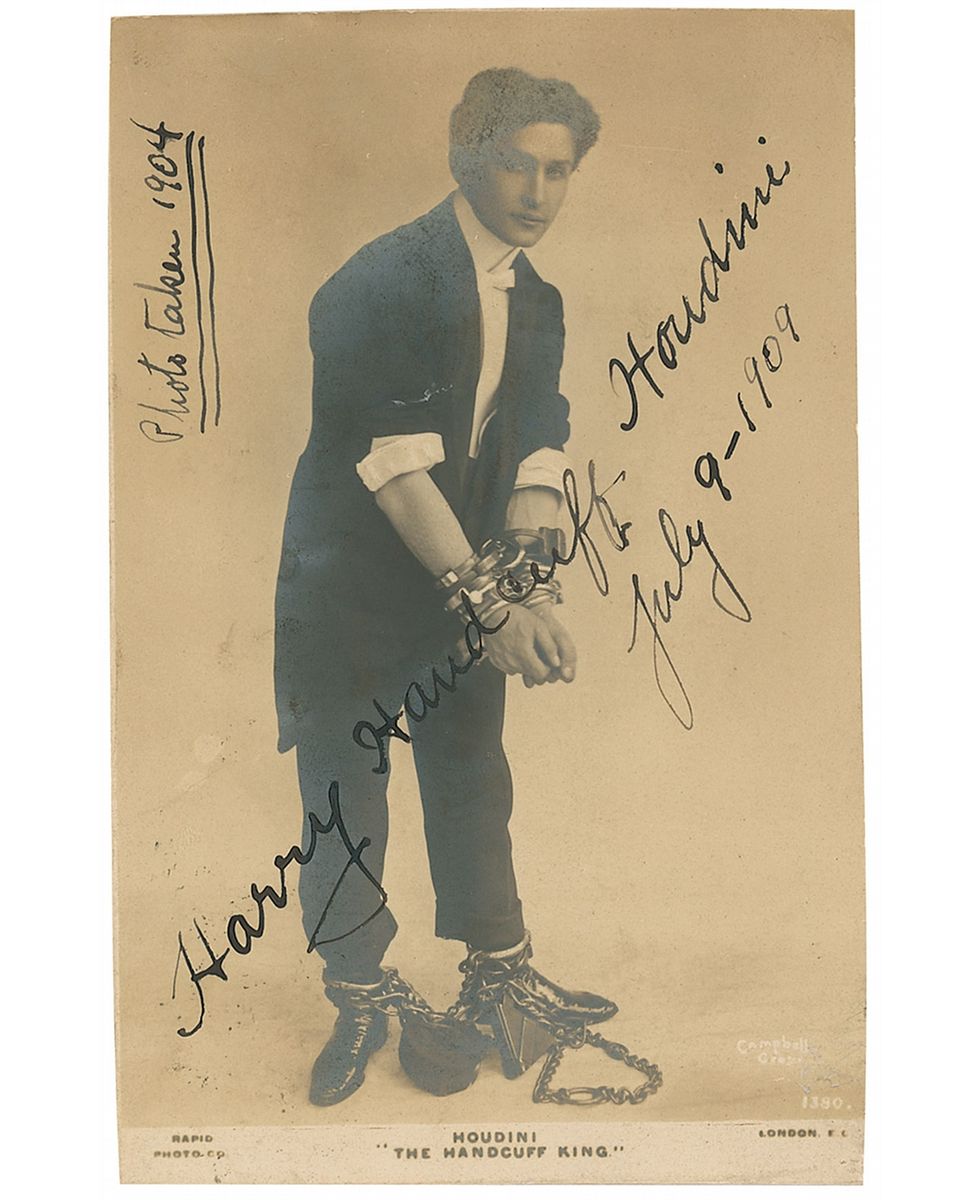 Photo taken 1904
Harry Handcuff Houdini
July 9-1909
Campbell
1380.
RAPID
PHOTO-CO
HOUDINI
"THE HANDCUFF KING."
LONDON, E.C